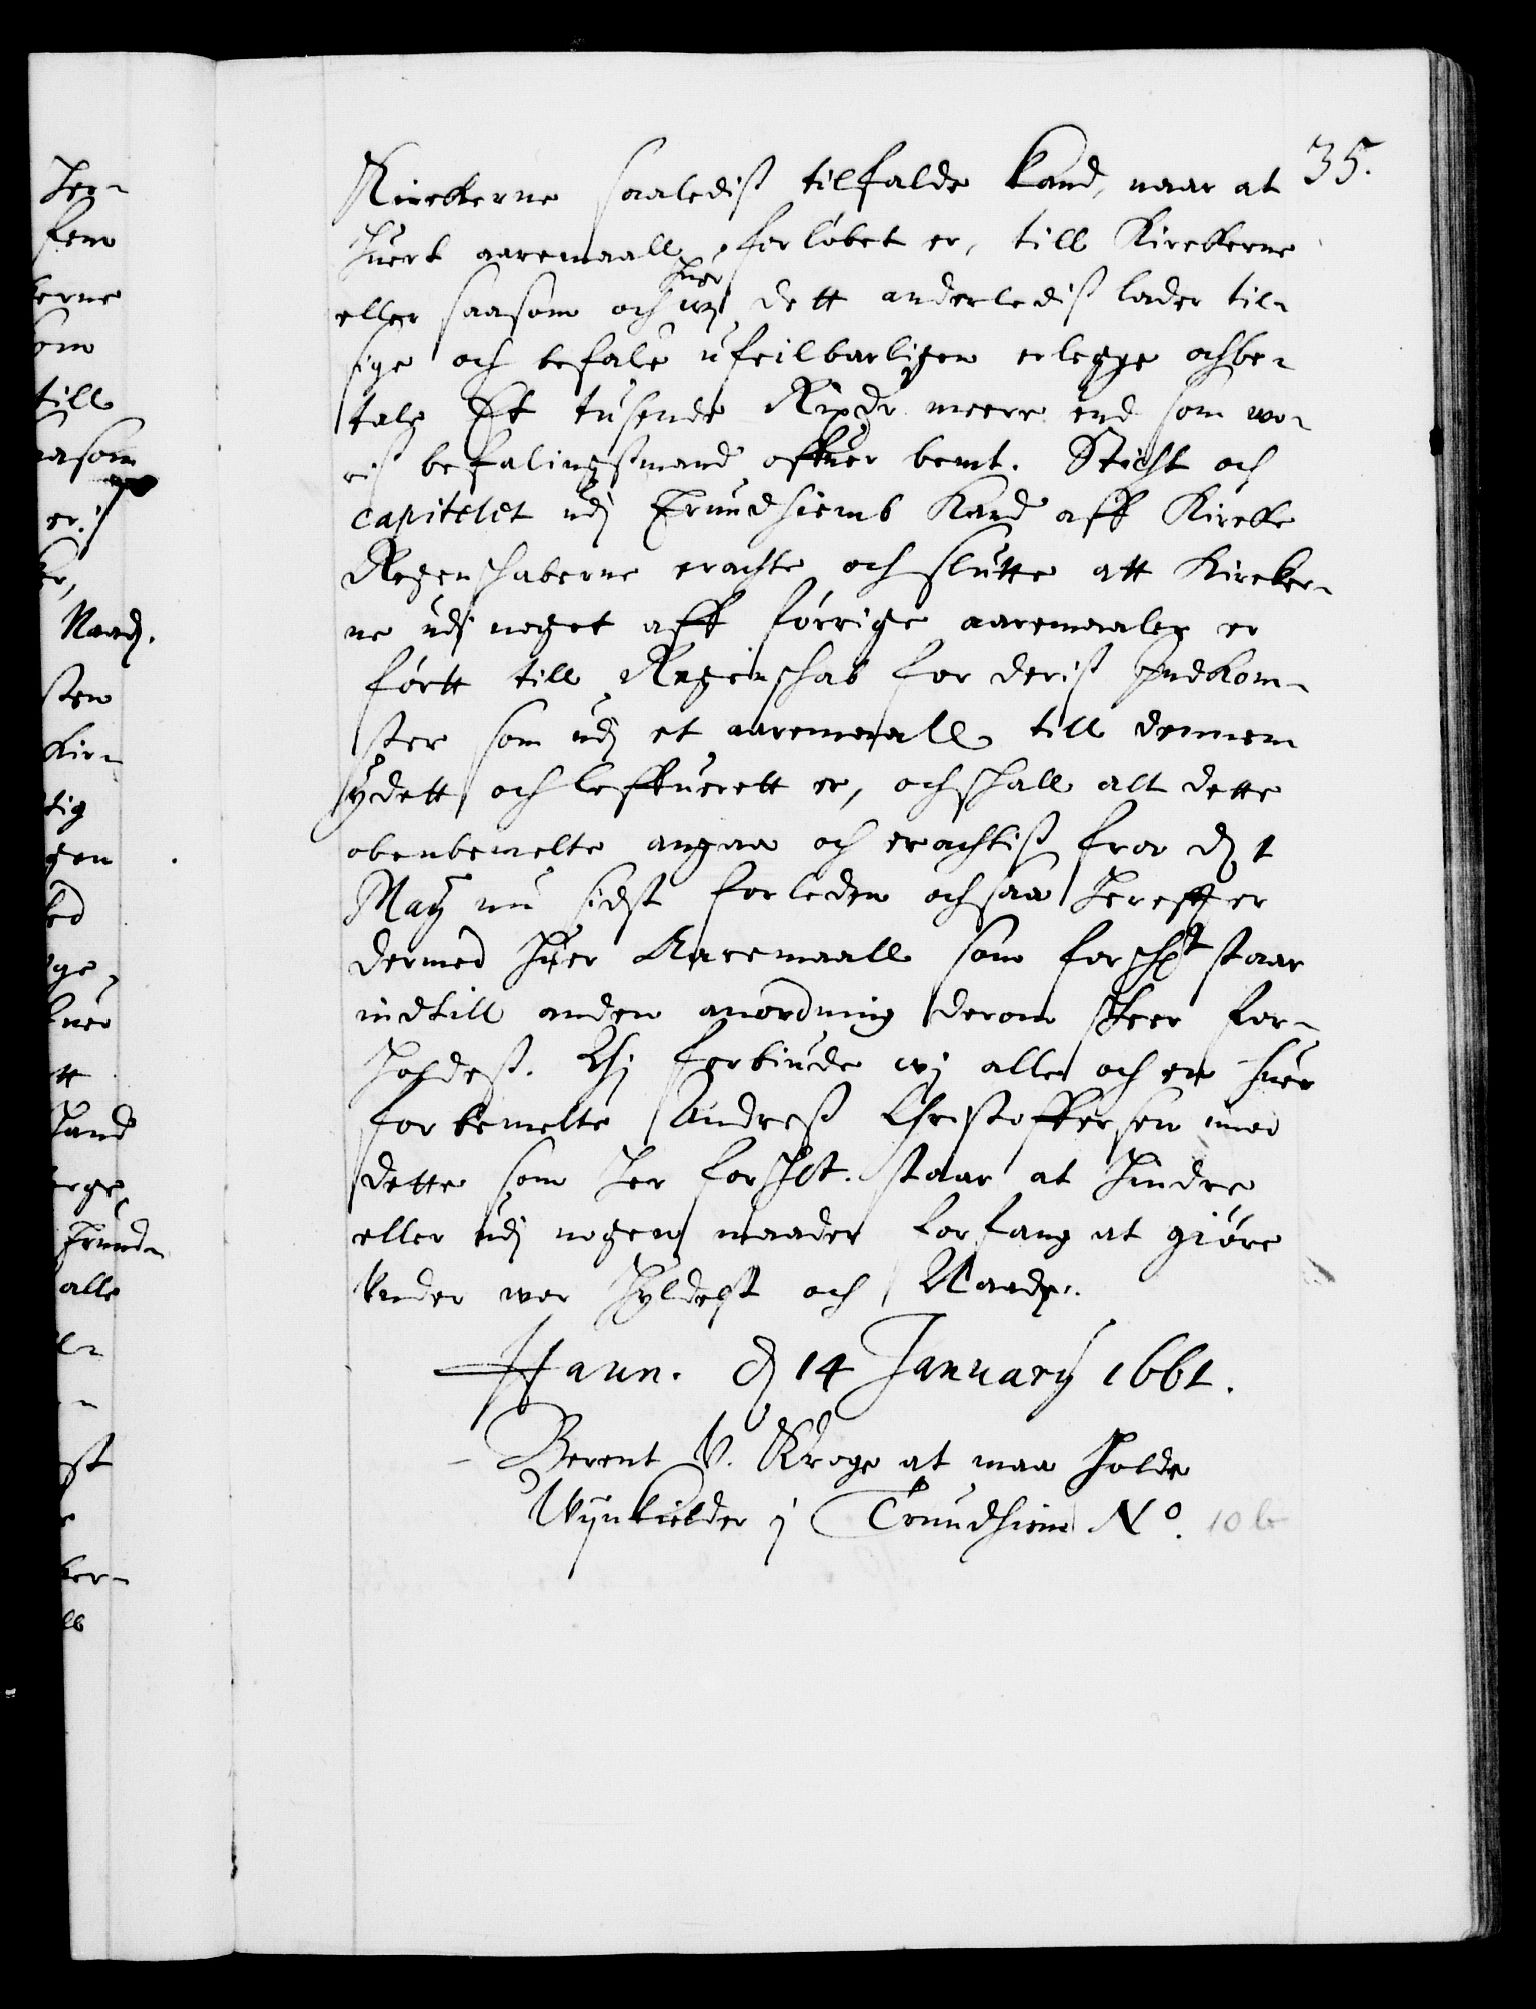 35.
Kirckerne saaledis tilfalde kand, naar at
huert aaremaall forløbet er, till Kirckerne
eller saasom och huor wj dett anderledis lader til-
sige och befale ufeilbarligen erlegge och be-
tale Et tusende Rixdr meere end som wo-
ris befalingsmand offuer bemt. Sticht och
capitelet udj Trundhiemb kand aff Kircke
Regenschaberne erachte och slutte att Kircker-
ne udj noget aff forrige aaremaaler er
førtt till Regenschab for deris Indkom-
ster som udj et aaremaall till dennem
ydett och leffuerett er, och schall alt dette
obenbemelte angaa och erachtis fra d 1
Maij nu sidst forleden och saa hereffter
dermed huer Aaremaall som forschr staar
indtill anden anordning derom skeer for-
holdes. Thj forbiude wj alle och en huer
forbemelte Andres Christoffersen imod
dette som her forscht. staar at hindre
eller udj nogen maader forfang at giøre
Under wor hyldest och Naade.
Haun. d 14 January 1661.
Berent V. Kroge at maa holde
Wijnkielder j Trundhiem No. 10 b
her-
fem
kerne
om
till
saasom
er.
Naad.
sten
Kir-
tig
gen
ed
ge-
huer
tt
hand
Trund-
alle
st
ker-